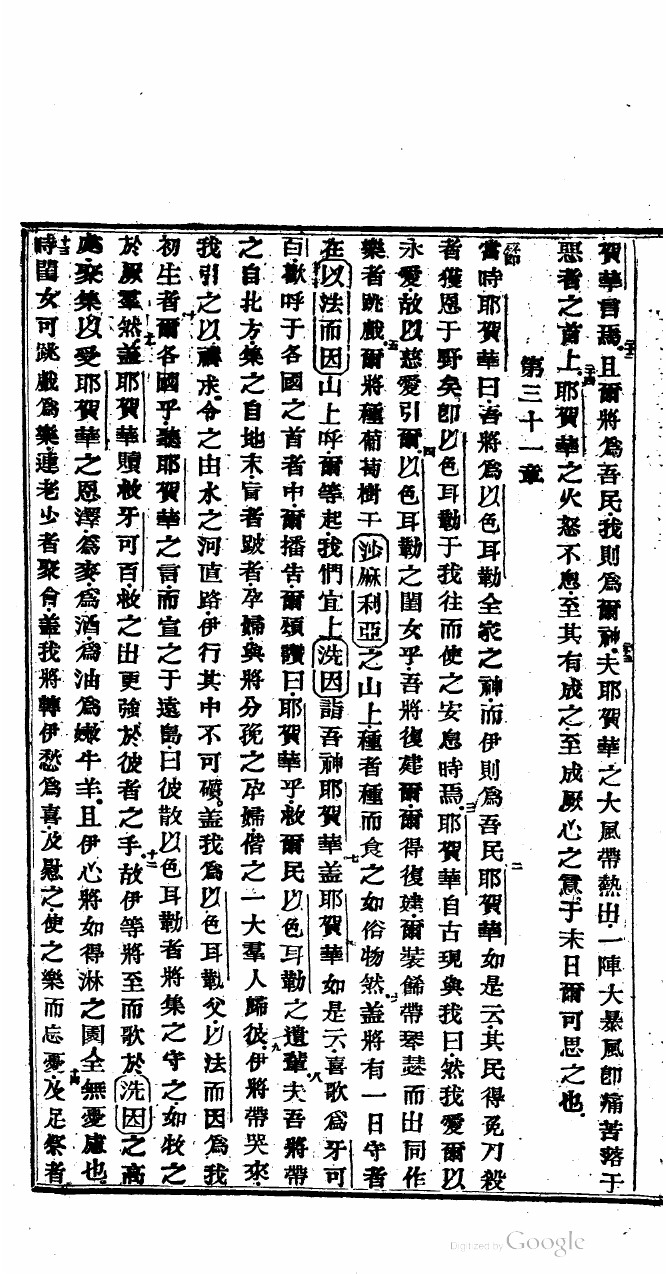 賀華言焉二十二且爾將為吾民我則為爾神二十三夫耶賀華之大風帶熱出一陣大暴風即痛苦落于
惡者之首上二十四耶賀華之火怒不息至其有成之至成厥心之意于末日爾可思之也
第三十一章
一節當時耶賀華曰吾將為以色耳勒全家之神而伊則為吾民二耶賀華如是云其民得免刀殺
者獲恩于野矣即以色耳勒于我往而使之安息時焉三耶賀華自古現與我曰然我愛爾以
永愛故以慈愛引爾四以色耳勒之閨女乎吾將復建爾爾得復建爾裝餙帶琴瑟而出同作
樂者跳戲五爾將種葡萄樹于沙麻利亞之山上種者種而食之如俗物然六蓋將有一日守者
在以法而因山上呼爾等起我們宜上洗因詣吾神耶賀華七蓋耶賀華如是云喜歌為牙可
百歡呼于各國之首者中爾播告爾頌讚曰耶賀華乎救爾民以色耳勒之遺輩八夫吾將帶
之自北方集之自地末盲者跛者孕婦與將分娩之孕婦偕之一大羣人歸彼九伊將帶哭來
我引之以禱求令之由水之河直路伊行其中不可礩蓋我為以色耳勒父以法而因為我
初生者十爾各國乎聽耶賀華之言而宣之于遠島曰彼散以色耳勒者將集之守之如牧之
於厥羣然十一蓋耶賀華贖救牙可百救之出更強於彼者之手十二故伊等將至而歌於洗因之高
處聚集以受耶賀華之恩澤為麥為酒為油為嫩牛羊且伊心將如得淋之園全無憂慮也
十三時閨女可跳戲為樂連老少者聚會蓋我將轉伊愁為喜及慰之使之樂而忘憂十四及足祭者
Digitized by Google